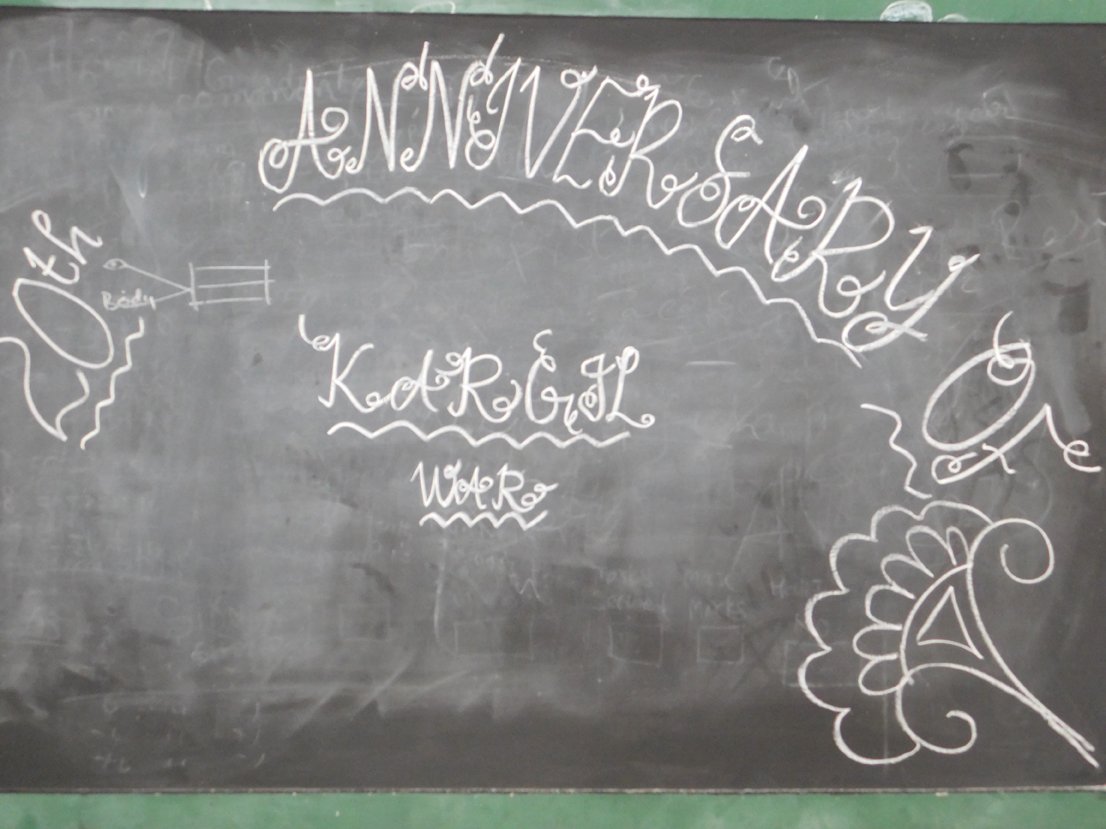 0th ANNIVERSARY OF
Body
KARGIL
WAR